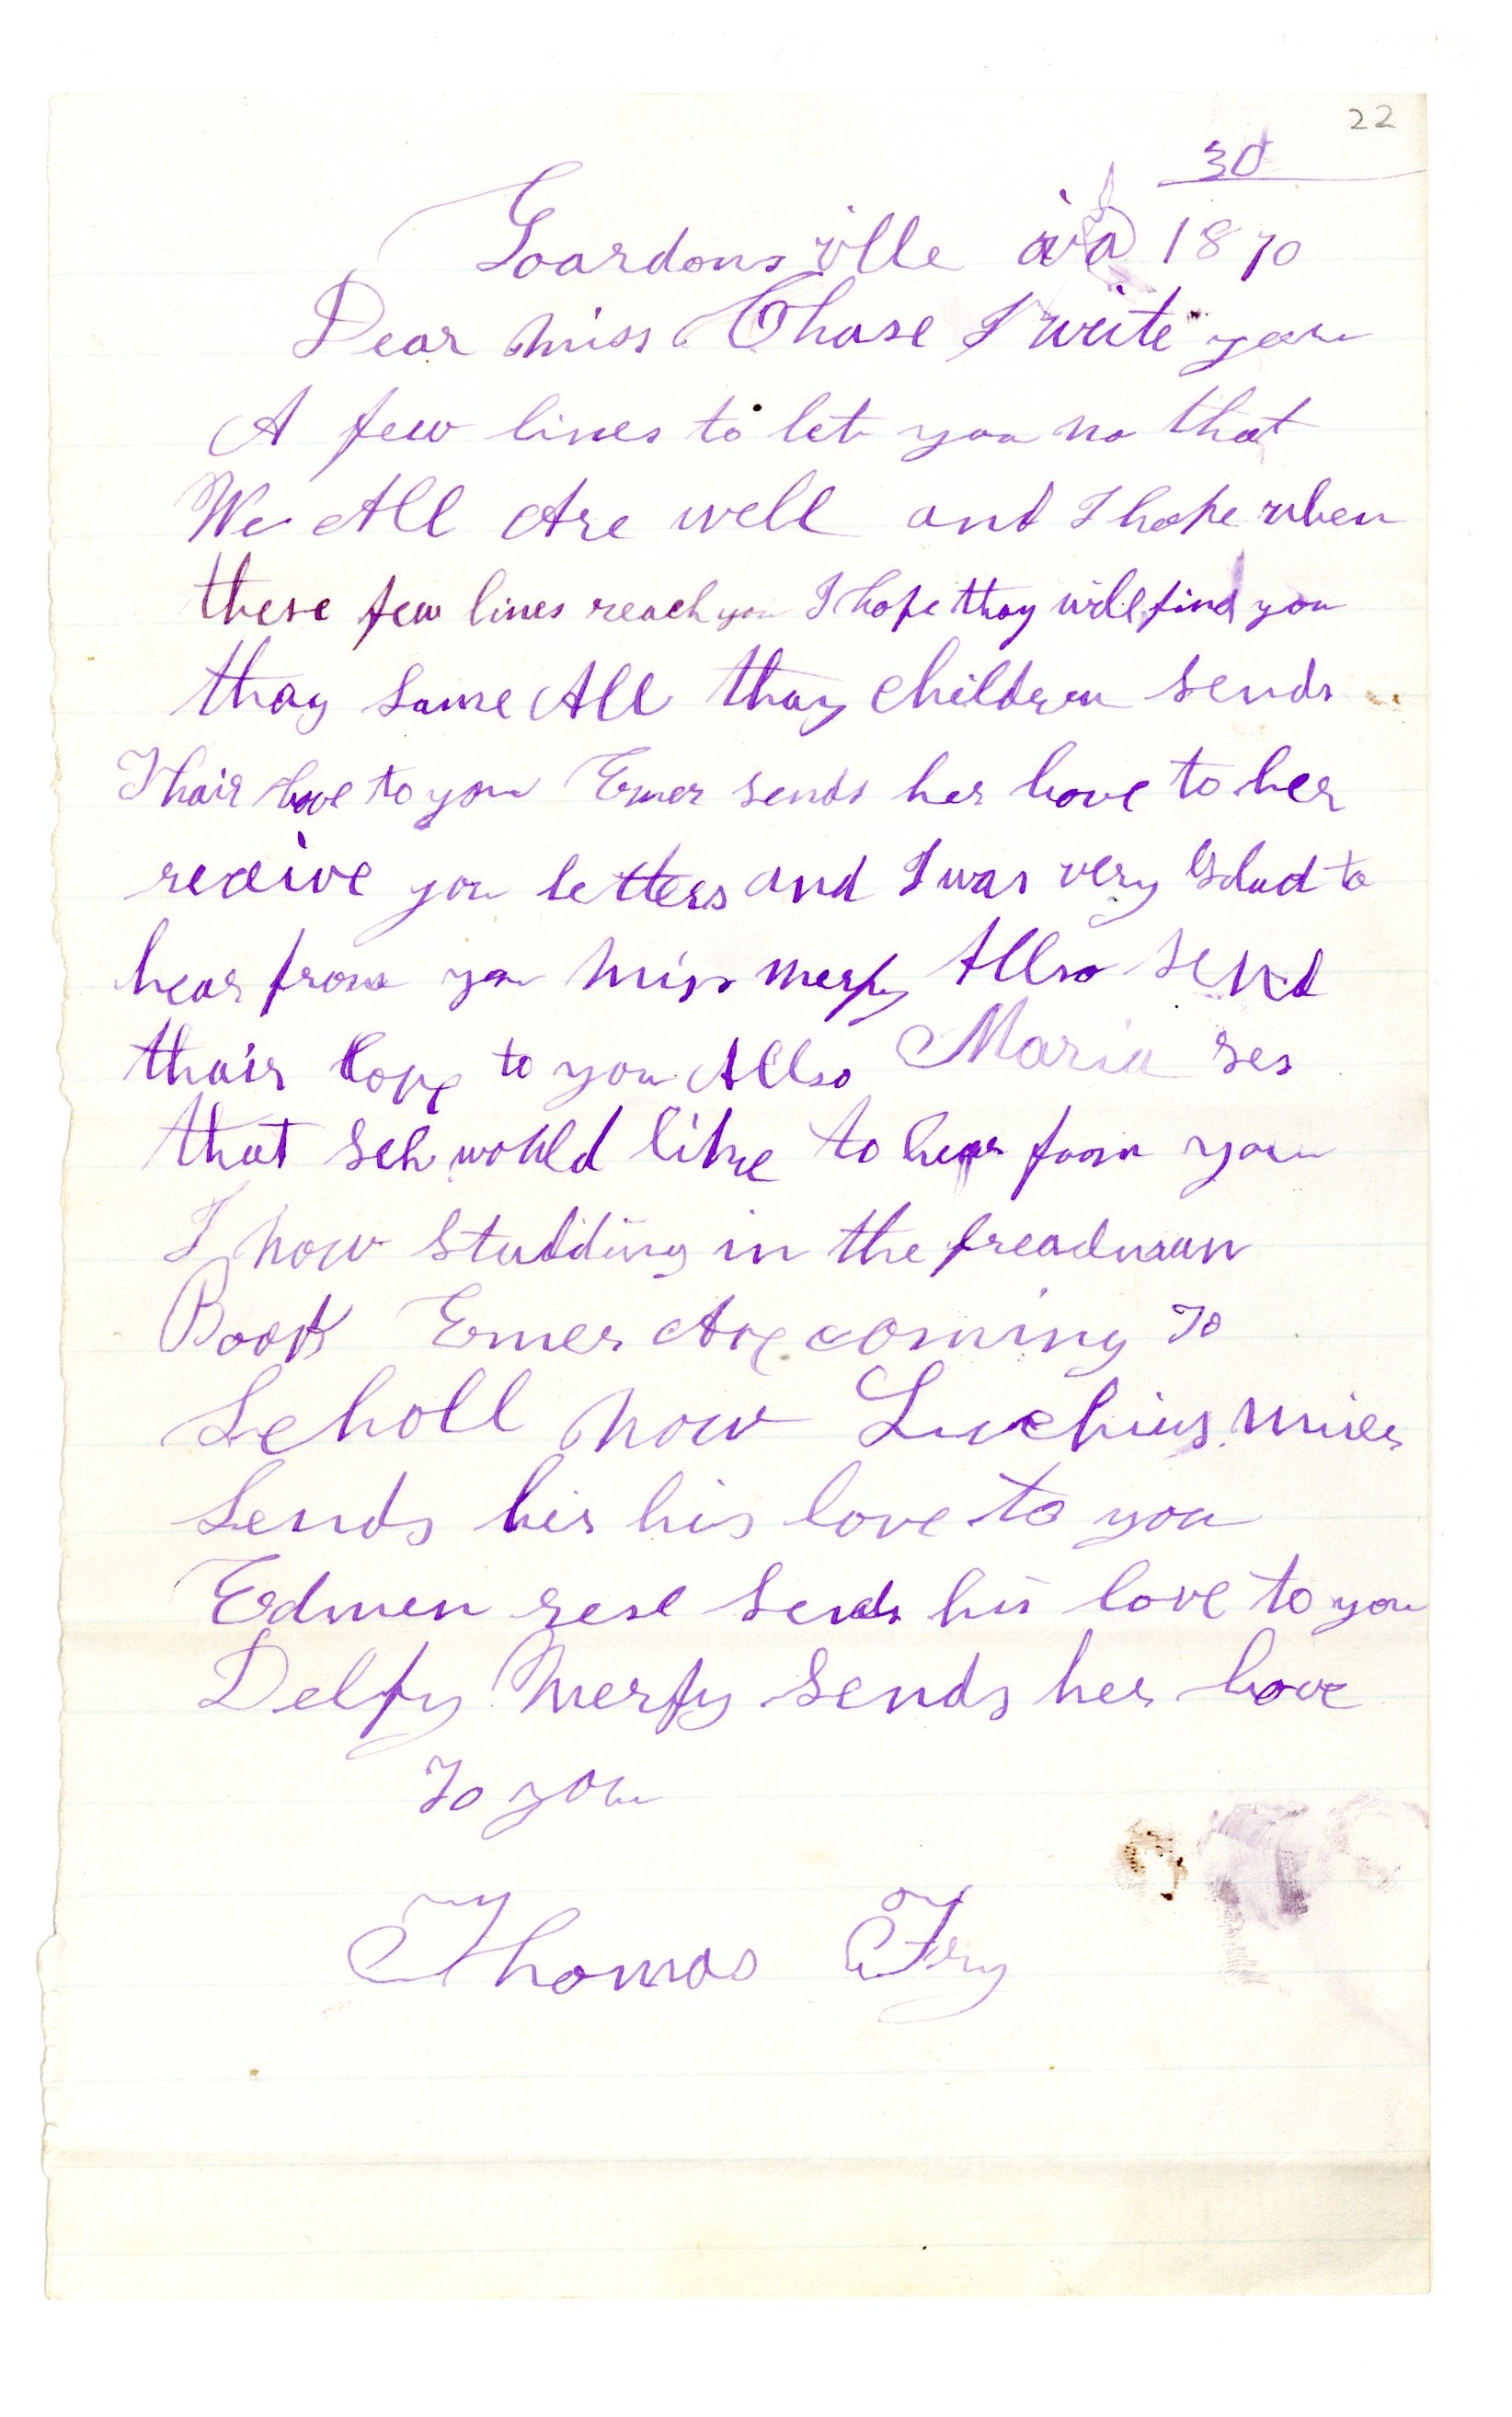 22
30
Goardonsville va 1870
Dear miss Chase I write you
A few lines to let you no that
We All Are well and I hope when
these few lines reach you I hope thay will find you
thay same All thay children sends
Thair love to you Emer sends her love to her
recive you letters and I was very Glad to
hear from you miss merfy Allso send
thair love to you Allso Maria ses
that seh would like to hear from you
I now studding in the freadman
Book Emer Are coming to
Scholl now Luchius miles
Sends his his love to you
Edmen rese sends his love to you
Delfy Merfy sends her love
To you
Thomas Fry